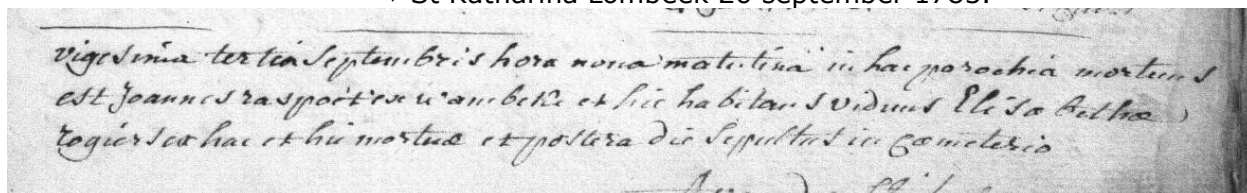 St Katharina Lombeek 26 september 1783.
vigesima tertia Septembris hora nona matutina in hac parochia mortuus
est Joannes raspoet ex wambeke et hic habitans viduus Elisabethæ
rogiers ex hac et hic mortuæ et postera die sepultus in cœmeterio